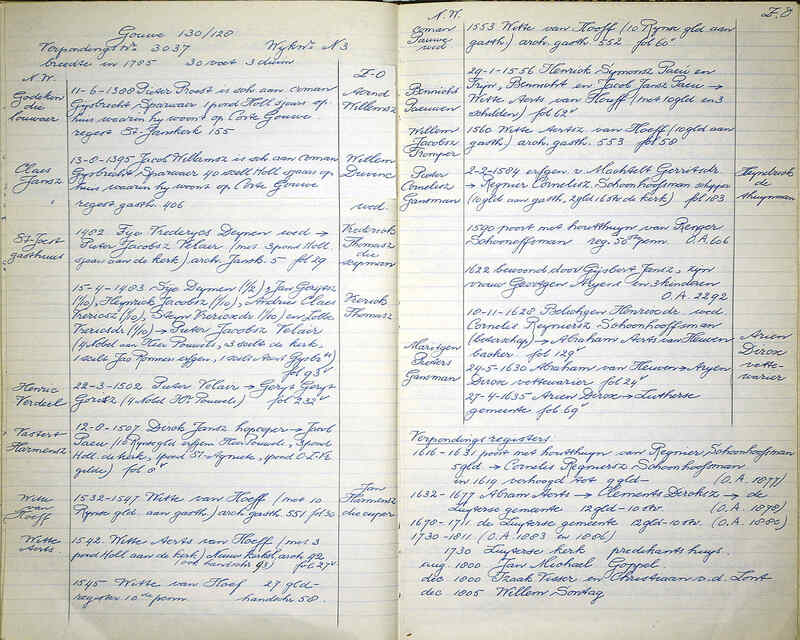 Gouwe 130/128
Verpondings Nr. 3037 Wyk Nr. N3
breedte in 1785 30 voet 3 duim
N.W.
Z-O
Godeken
die
louwaer
11-6-1388 Pieter Proost is sch. aan coman
Gysbrecht Sparwaer 1 pond Holl sjaars op
huis waarin hy woont op Corte Gouwe.
regest St. Janskerk 155
Aernd
Willemsz
Claes
Jansz
13-8-1395 Jacob Willemsz is sch. aan coman
Gysbrecht Sparwaer 40 scell Holl sjaars op
huis waarin hy woont op Corte Gouwe
regest gasth. 406
Willem
Duvenc
wed.
St. Joest
gasthuus
1482 Fye Dedericx Deynen wed →
Pieter Jacobsz Velaer (mes 3 pond Holl.
sjaars aan de kerk) arch. Jansk. 5 fol 29
Frederick
Thomasz
die
scipman
15-4-1483 Sye Deymen (1/2), Jan Gerytsz
(1/10), Heynrick Jacobsz (1/10), Andries Claes
Vriericsz (1/10), Steyn Vriericxdr 1/10) en Lotte
Vriericsdr (1/10) → Pieter Jacobsz Velaer
(4 Nobel aan Heer Pouwels, 3 scilt de kerk,
1 scilt Jas Ronnen erfgen, 1 scilt Aert Gysb. )
fol 93v
Vrerick
Thomasz
Henric
Verdeel
22-3-1502 Pieter Velaer → Gerys Gerys
Goritsz (4 Nobel Hr. Pouwels) fol 232v
Vastert
Harmensz
12-8-1507 Dirck Jansz hopcoper → Jacob
Paeu (10 Rynsgld erfgen Heer Pouwel, 3 pond
Holl. de kerk, 1 pond St. Agniete, 1 pond O.L.Ve
gilde) fol 8v
Witte
van
Hoeff
1532-1547 Witte van Hoeff (met 10
Rynse gld. aan gasth.) arch. gasth. 551 fol 30
Jan
Harmensz
die cuper
Witte
Aerts.
1542 Witte Aerts van Hoeff (mes 3
pond Holl aan de kerk) Nieuw kerksl. arch 42
(ook handschr 43) fol 27v
1545 Witte van Hoef 27 gld-
register 10de penn handschr 58.
N.W.
Z-O
coman
Pauwe
wed
1553 Witte van Hooff (10 Rynse gld aan
gasth) arch. gasth. 552 fol 60v
Bennicht
Paeuwen
29-1-1556 Henrick Symonsz Paeu en
Tryn, Bennicht en Jacob Jansz Paeu →
Witte Aerts van Hoeff (met 10 gld en 3
schilden) fol 62v
Willem
Jacobsz
Tromper
1560 Witte Aertsz van Hoeff (10 gld aan
gasth) arch. gasth. 553 fol 58
Pieter
Cornelisz
Gansman
2-2-1584 erfgen. v. Machtelt Gerritsdr.
→ Regnier Cornelisz. Schoonhoofsman schipper
(10 gld aan gasth, 2 gld 16 st de kerk) fol 183
Heyndrick
de
thuynman
1590 poort met houtthuyn van Renger
Schoonoffsman reg. 56ste penn. O.A. 606
1622 bewoond door Gysbert Jansz, zyn
vrouw Geertgen Aryens en 3 kinderen
O.A. 2292
Maritgen
Pieters
Gansman
10-11-1628 Belichgen Henricxdr wed.
Cornelis Reyniersz Schoonhooffsman
(boterschip) → Abraham Aerts van Heuven
backer fol 129v
24-5-1630 Abraham van Heuven → Aryen
Dircx vettewarier fol 24v
27-4-1635 Arien Dircx → Lutherse
gemeente fol 69v
Arien
Dircx
vette-
warier
Verpondingsregisters
1616-1631 poort met houtthuyn van Regnier Schoonhooffsman
5 gld → Cornelis Regniersz Schoonhooffsman
in 1619 verhoogd tot 9 gld- (O.A. 1877)
1632-1677 Abram Aerts → Clements Dirckzs → de
Luyterse gemeente 12 gld-10 str (O.A. 1878)
1670-1711 de Luyterse gemeente 12 gld-10 str (O.A. 1880)
1730-1811 (O.A. 1883 in 1886)
1730 Luyterse kerk predikants huys.
aug 1800 Jan Michael Göppel
dec 1800 Izaak Visser en Christiaan v.d. Lont
dec 1805 Willem Sontag